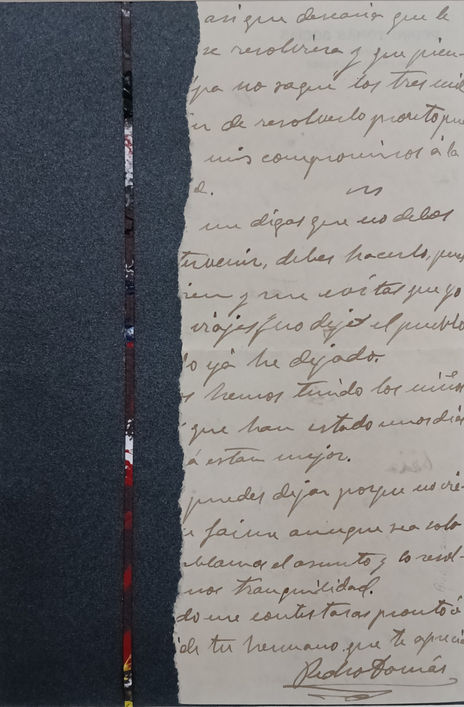 asi que desearia que le
se resolviera y que pien-
pa no saque los tres mil
de resolverlo pronto pue
mis compromisos á la
d.
me digas que no debes
tervenir, debes hacerlo, pues
rien y me evitas que yo
viajes, no dejé el pueblo
lo yá he dejado.
s hemos tenido los niños
que han estado unos dias
á estan mejor.
puedes dejar porque no vie-
faina aunque sea solo
blamos el asunto y lo resol-
mos tranquilidad.
do me contestaras pronto
de tu hermano que te aprecia
Pedro Tomás